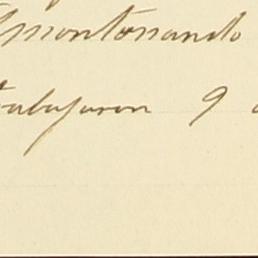 amontonando
trabajaron 9